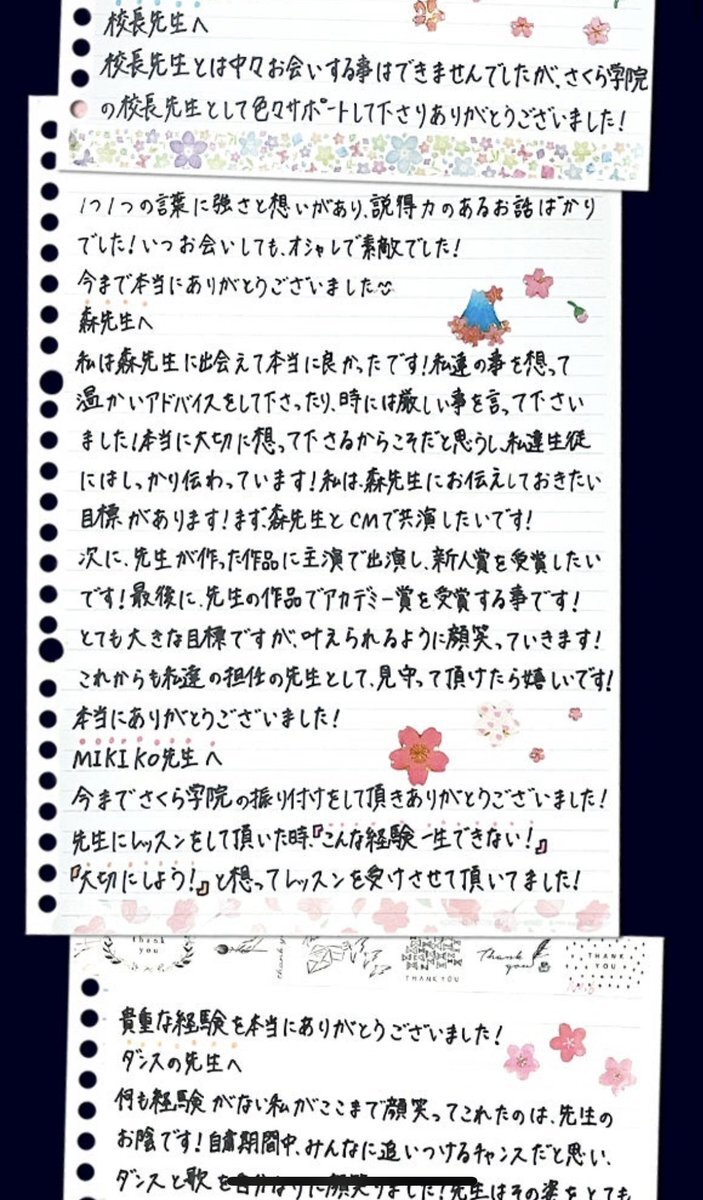 校長先生へ
校長先生とは中々お会いする事はできませんでしたが、さくら学院
の校長先生として色々サポートして下さりありがとうございました！
1つ1つの言葉に強さと想いがあり、説得力のあるお話ばかり
でした！いつお会いしても、オシャレで素敵でした！
今まで本当にありがとうございました
森先生へ
私は森先生に出会えて本当に良かったです！私達の事を想って
温かいアドバイスをして下さったり、時には厳しい事を言って下さい
ました！本当に大切に想って下さるからこそだと思うし、私達生徒
にはしっかり伝わっています！私は、森先生にお伝えしておきたい
目標があります！まず、森先生とCMで共演したいです！
次に、先生が作った作品に主演で出演し、新人賞を受賞したい
です！最後に、先生の作品でアカデミー賞を受賞する事です！
とても大きな目標ですが、叶えられるように顔笑っていきます！
これからも私達の担任の先生として、見守って頂けたら嬉しいです！
本当にありがとうございました！
MIKIKO先生へ
今までさくら学院の振り付けをして頂きありがとうございました！
先生にレッスンをして頂いた時、『こんな経験一生できない！』
『大切にしよう！』と想ってレッスンを受けさせて頂いてました！
thank you
thank you
THANK YOU
Thank you
THANK YOU
貴重な経験を本当にありがとうございました！
ダンスの先生へ
何も経験がない私がここまで顔笑ってこれたのは、先生の
お陰です！自粛期間中、みんなに追いつけるチャンスだと思い、
ダンスと歌を自分なりに顔笑りました！先生はその姿をとても